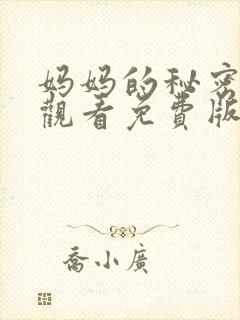 妈妈的秘密
觀看免費版
喬小廣